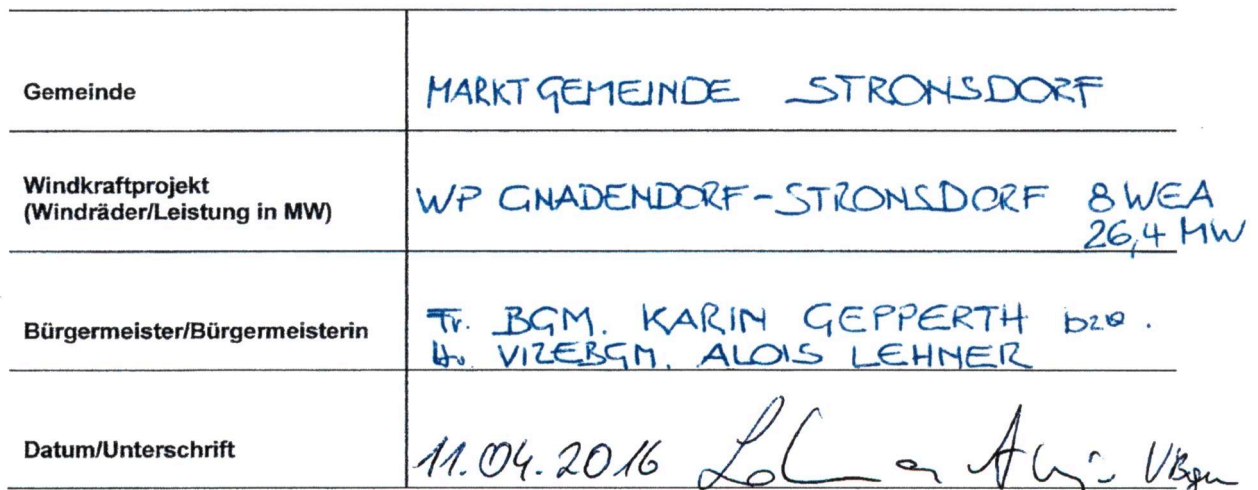 Gemeinde MARKTGEMEINDE STRONSDORF
Windkraftprojekt
(Windräder/Leistung in MW) WP GNADENDORF-STRONSDORF 8 WEA
26,4 MW
Bürgermeister/Bürgermeisterin Fr. BGM. KARIN GEPPERTH bzw.
Hr. VIZEBGM. ALOIS LEHNER
Datum/Unterschrift 11.04.2016 Lehner Alois VBgm